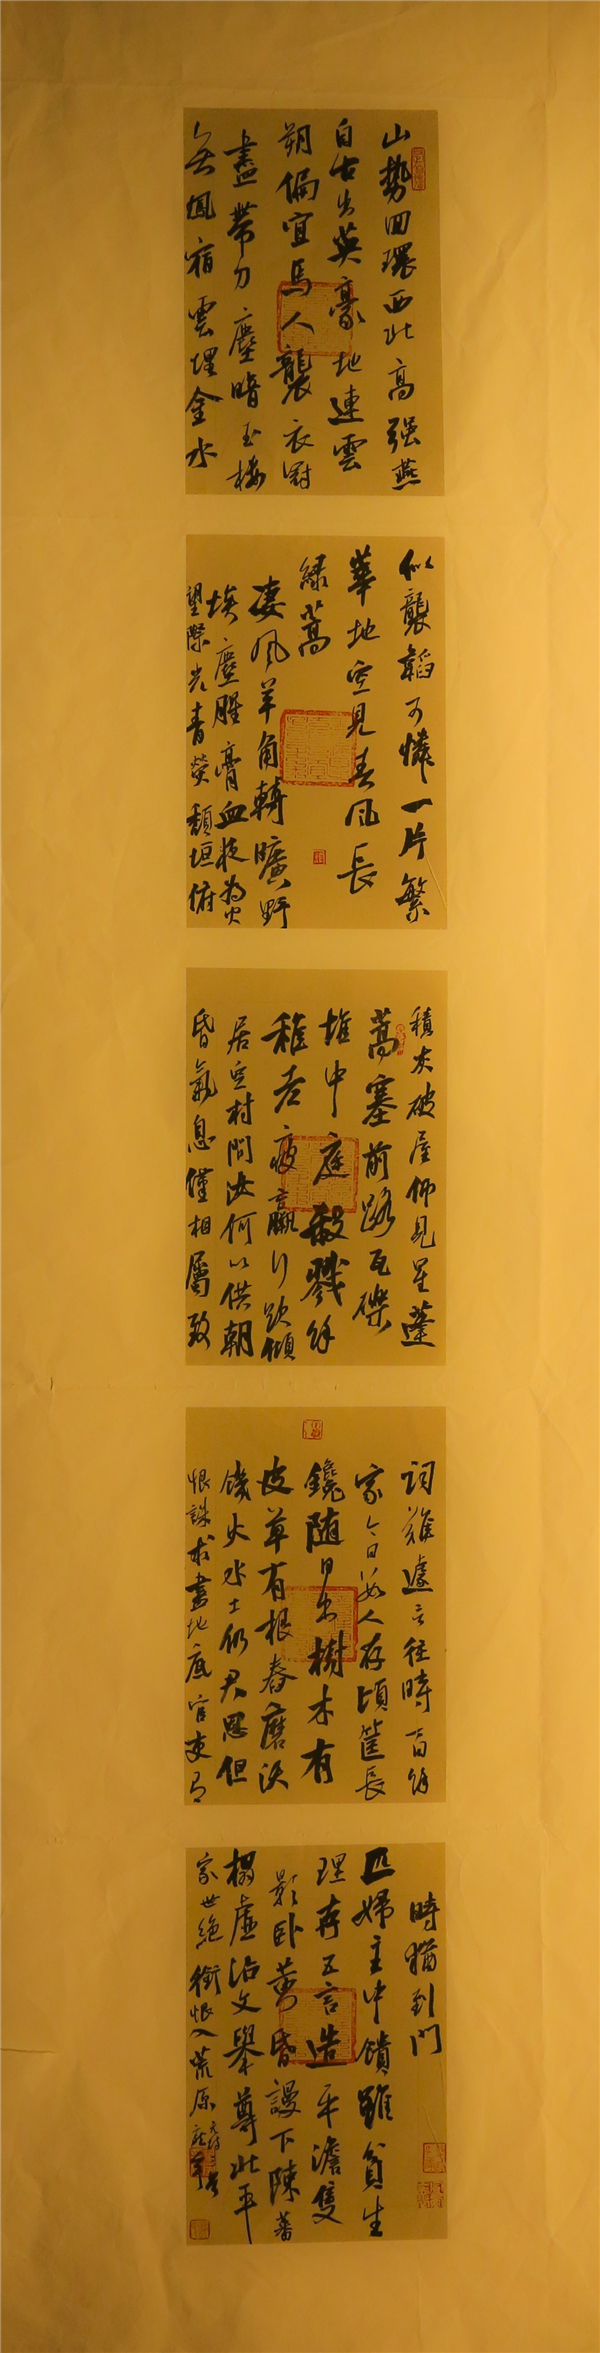 山勢回環西北高強燕
自古出英豪地連雲
朔偏宜馬人襲衣冠
盡帶刀塵暗玉樓
無鳳宿雲埋金水
似龍韜可憐一片繁
華地空見春風長
綠蒿
凄風羊角轉曠野
埃塵腥膏血夜為火
望際光青熒頹垣俯
積灰破屋仰見星蓬
蒿塞前路瓦礫
堆中庭殺戮餘
稚老疲羸行欹傾
居空村問汝何以供朝
昏氣息僅相屬致
詞難遽言往時百餘
家今日數人存頃筐長
鑱隨日出樹木有
皮草有根舂磨沃
饑火水土仍君恩但
恨誅求盡地底官吏有
時猶到門
匹婦主中饋雖貧生
理存五言造平澹隻
影卧黃昏謾下陳蕃
榻虛沾文舉尊此平
家世絕銜恨入荒原